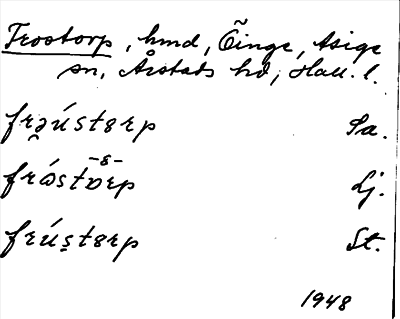 Frostorp, hmd, Öinge, Asige
sn, Årstads hd, Hall. l.
frə̯ústɵrp Sa.
-ɵ-
frǿstɒrp Lj.
frústɵrp St.
1948